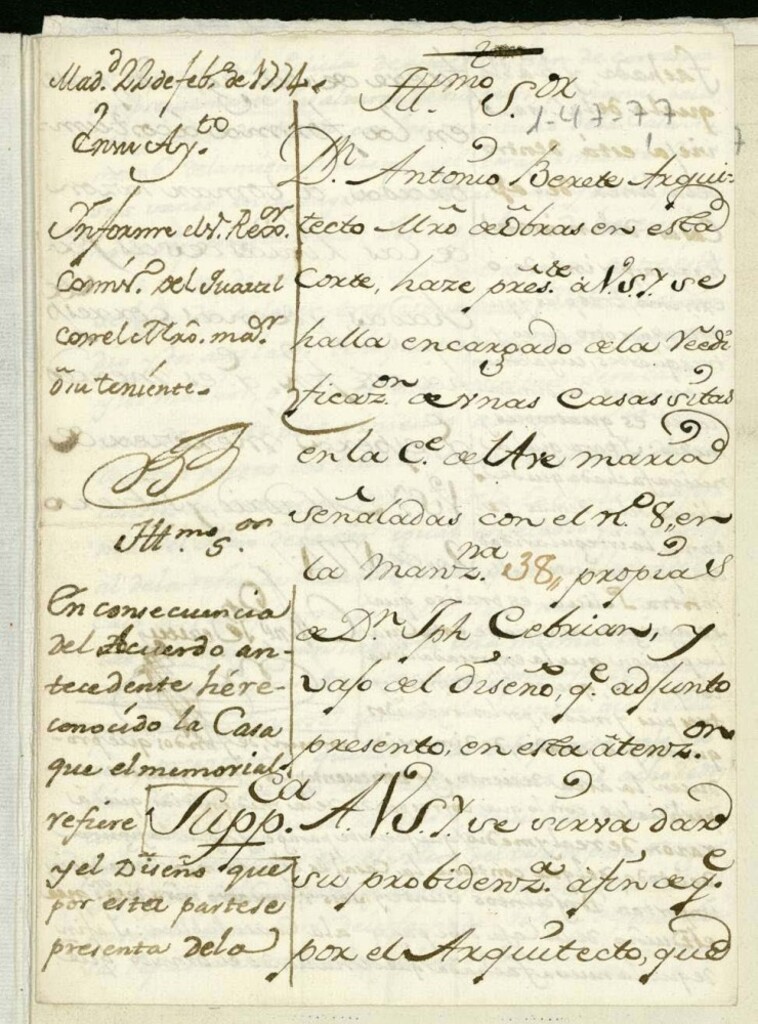 Mad.d 22 de feb.o de 1774.
En su Ay.to
Informe el S.r Reg.or
Comis.o del Quartel
con el Mro. ma.or
ô su teniente.
Ill.mo S.or
1-47-77
D.n Antonio Berete Arqui-
tecto Mro de Obras en esta
Corte, haze pres.te a V.S.Y. se
halla encargado de la Reedi
ficaz.on de Vnas Casas sitas
en la C.e del Ave maria
señaladas con el n.o 8,, en
la Manz.na 38,, propias
de D.n Jph Cebrian, y
vajo del diseño, q.e adjunto
presento, en esta atenz.on
Supp.ca A. V.S.Y. se sirva dar
su probidenz.a a fin de q.e
por el Arquitecto, que
Ill.mo S.or
En consecuencia
del Acuerdo an-
tecedente hé re-
conocido la Casa
que el memorial
refiere
y el Diseño que
por esta parte se
presenta de la